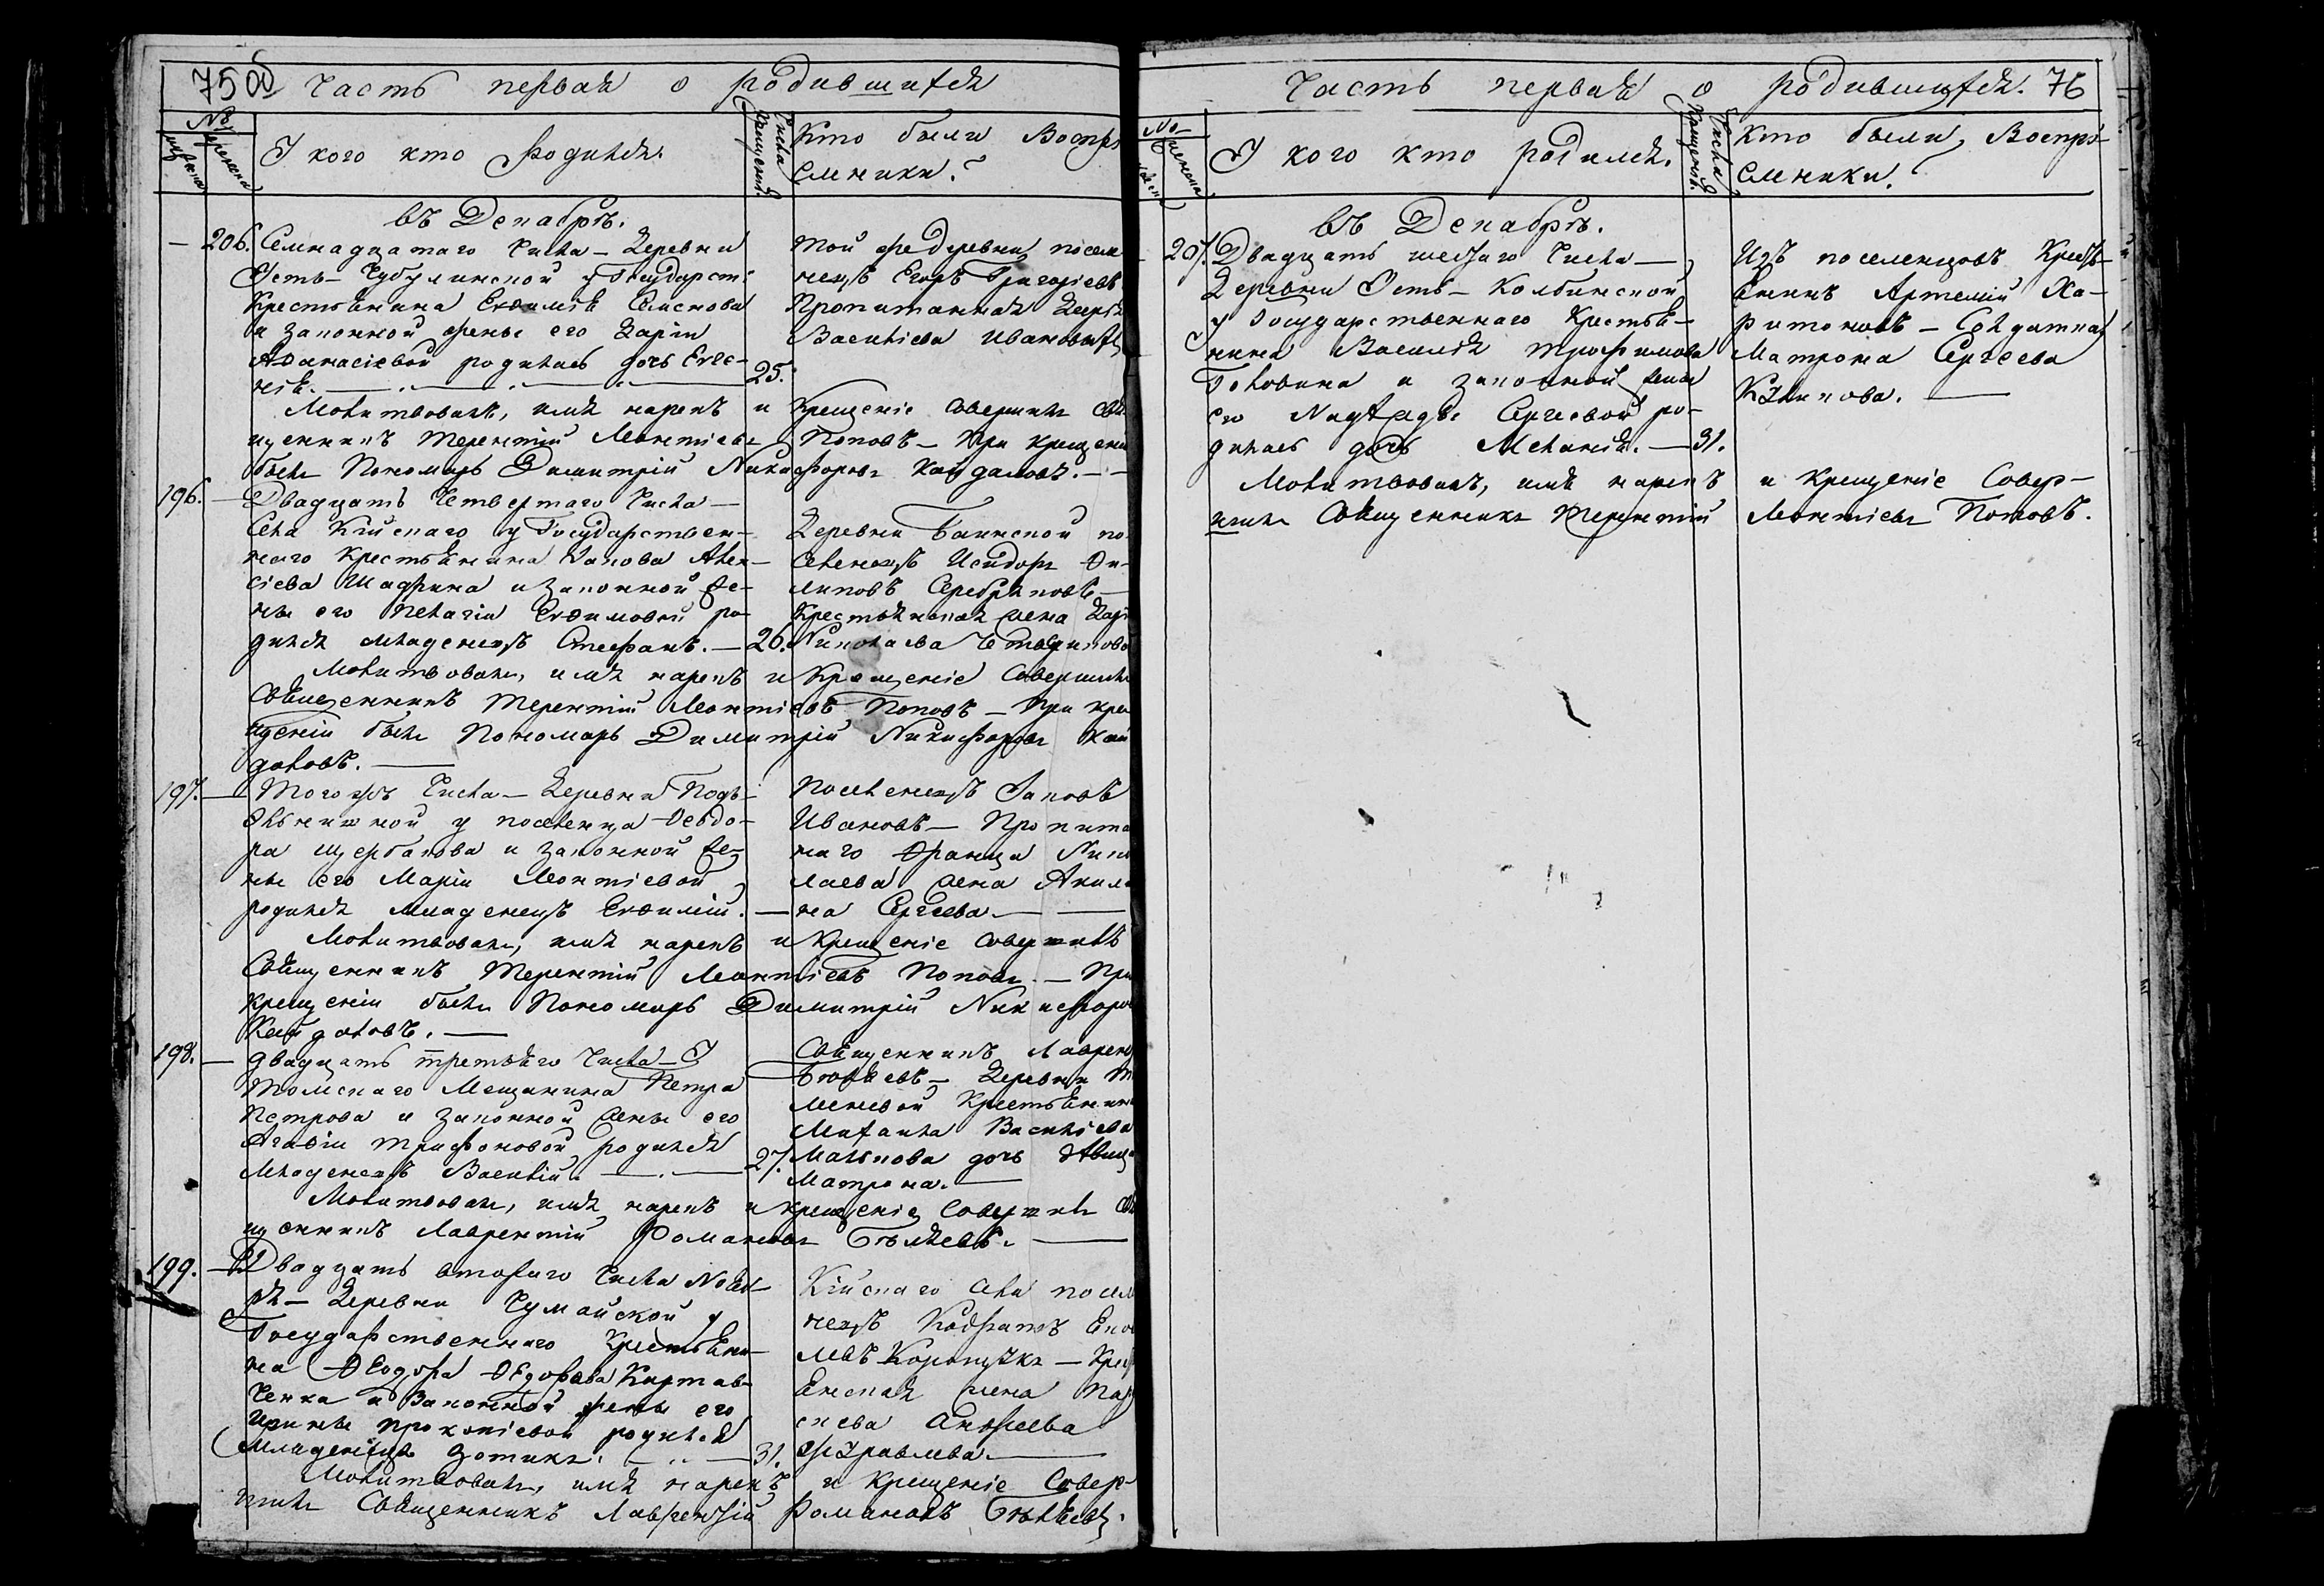 75 об Часть первая о родившихся
№ мужеска женска
У кого кто родился.
Числа крещенія.
Кто были Воспрі
емники?
въ Декабрѣ.
— 206. Семнадцатаго Числа — Деревни
Усть-Чубулинской у Государст:
Крестьянина Евѳимія Семенова
и законной жены его Даріи
Аѳанасіевой родилась дочь Евге-
нія. 25.
той же деревни поселе
нецъ Егоръ Григоріевъ
Пропитаннаго
Василіева Иванова
Молитвовалъ, имя нарекъ и Крещеніе совершилъ Свя
щенникъ Терентій Леонтіевъ Поповъ — При крещеніи
былъ Пономарь Димитрій Никифоровъ Кайдаловъ. —
196. — Двадцать Четвертаго Числа —
Села Кійскаго у Государствен-
наго Крестьянина Іакова Алек-
сіева Шадрина и законной же-
ны его Пелагіи Евѳимовой ро-
дился младенецъ Стефанъ. — 26.
Деревни Баимской по
селенецъ Исидоръ Фи-
липовъ Серебряковъ —
Крестьянская жена Дарі
Николаева
Молитвовалъ, имя нарекъ и Крещеніе Совершилъ
Священникъ Терентій Леонтіевъ Поповъ — При кре
щеніи былъ Пономарь Димитрій Никифоровъ Кай
даловъ. —
197. — Тогожъ Числа — Деревни Подъ-
ельничной у поселенца Ѳеодо-
ра Щербакова и законной же-
ны его Маріи Леонтіевой
родился младенецъ Евѳимій. —
Поселенецъ Іаковъ
Ивановъ — Пропита
наго Франца Нико
лаева жена Акили
на Сергеева —
Молитвовалъ, имя нарекъ и Крещеніе совершилъ
Священникъ Терентій Леонтіевъ Поповъ. — При
крещеніи былъ Пономарь Димитрій Никифоро
Кайдаловъ. —
198. — двадцать третьяго Числа — У
Томскаго Мещанина Петра
Петрова и законной жены его
Агафіи Трифоновой родился
Младенецъ Василій. — 27.
Священникъ Лаврент
Бѣляевъ — Деревни Т
меневой Крестьянина
Михаила Василіева
Малькова дочь дѣвица
Матрона. —
Молитвовалъ, имя нарекъ и крещеніе Совершилъ Свя
щенникъ Лаврентій Романовъ Бѣляевъ. —
199. — Двадцать втораго Числа Нояб-
ря — Деревни Чумайской у
Государственнаго Крестьяни-
на Ѳеодора Ѳедорова Картав-
ченка и Законной жены его
Ирины Прокопіевой родился
Младенецъ Зотикъ. — 31.
Кійскаго села посел
нецъ Кодратъ
левъ — Крест
янская жена Пар
скева Андреева
Журавлева. —
Молитвовалъ, имя нарекъ и крещеніе Совер-
шилъ Священникъ Лаврентій Романовъ Бѣляевъ.
Часть первая о родившихся. 76
№ женска
У кого кто родился.
Числа Крещенія.
Кто были, Воспрі-
емники?
въ Декабрѣ.
207. Двадцать шестаго Числа —
Деревни Усть-Колбинской
у Государственнаго Крестья-
нина Василія Трофимова
Головина и законной жены
его Надежды Сергеевой ро-
дилась дочь Меланія. — 31.
Изъ поселенцовъ Кресть-
янинъ Артемій Ха-
ритоновъ — Солдатка
Матрона Сергеева
Молитвовалъ, имя нарекъ и крещеніе Совер-
шилъ Священникъ Терентій Леонтіевъ Поповъ.